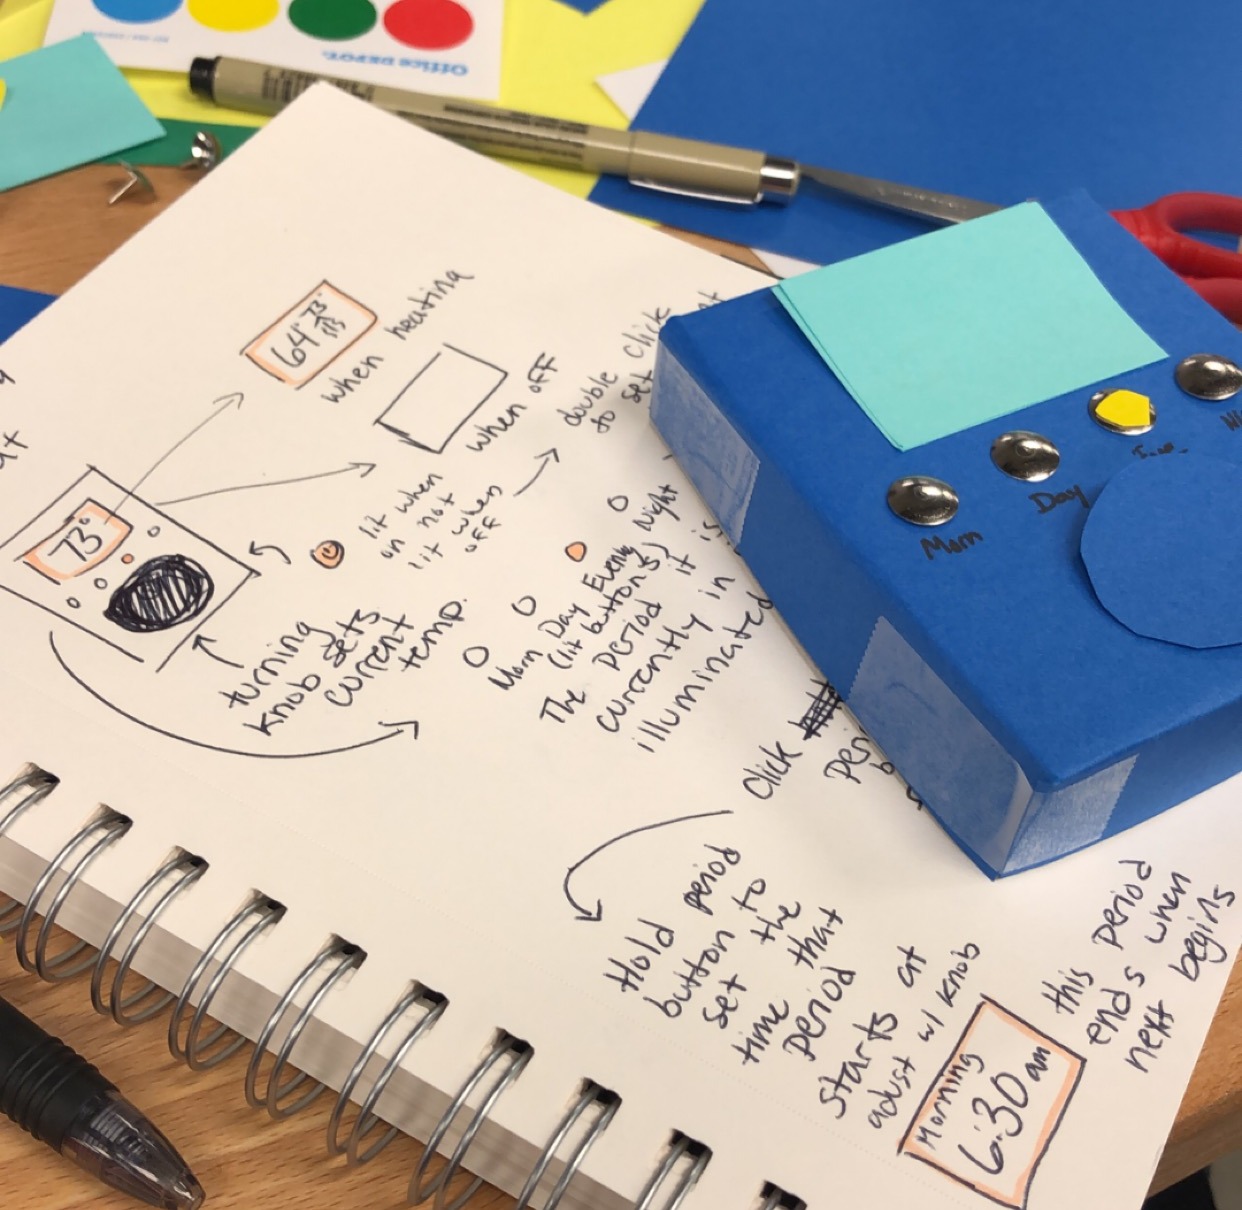 Office DEPOT
64° 73°
when heating
when off
73°
lit when
on not
lit when
off
double click
to set
turning
knob sets
current
temp.
Morn Day Evening Night
(lit buttons)
The period it is
currently in
illuminated
Click
Hold period
button to
set the
time that
period
starts at
adust w/ knob
Morning
6:30 am
this period
ends when
next begins
Morn
Day